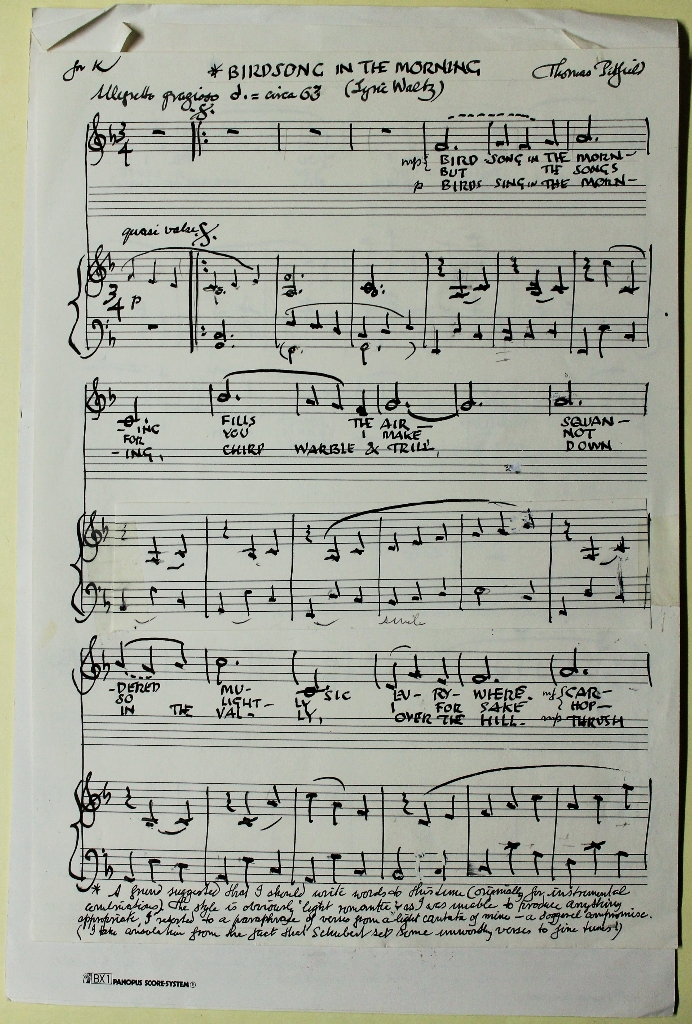 for K
* BIRDSONG IN THE MORNING
Thomas Pitfield
Allegretto grazioso d. = circa 63 (Lyric Waltz)
mp BIRD SONG IN THE MORN-
BUT THE SONGS
p BIRDS SING IN THE MORN-
quasi valse
p
-ING FILLS THE AIR — SQUAN-
FOR YOU I MAKE NOT
-ING, CHIRP WARBLE & TRILL, DOWN
-DERED MU- SIC EV-RY-WHERE. mf SCAR-
SO LIGHT- LY I FOR SAKE HOP-
IN THE VAL- LY, OVER THE HILL. mp THRUSH
* A friend suggested that I should write words to this tune (originally for instrumental
combinations). The style is obviously 'light romantic' & as I was unable to produce anything
appropriate, I resorted to a paraphrase of verses from a light cantata of mine — a doggerel compromise.
(I take consolation from the fact that Schubert set some unworthy verses to fine tunes!)
BX1 PANOPUS SCORE-SYSTEM